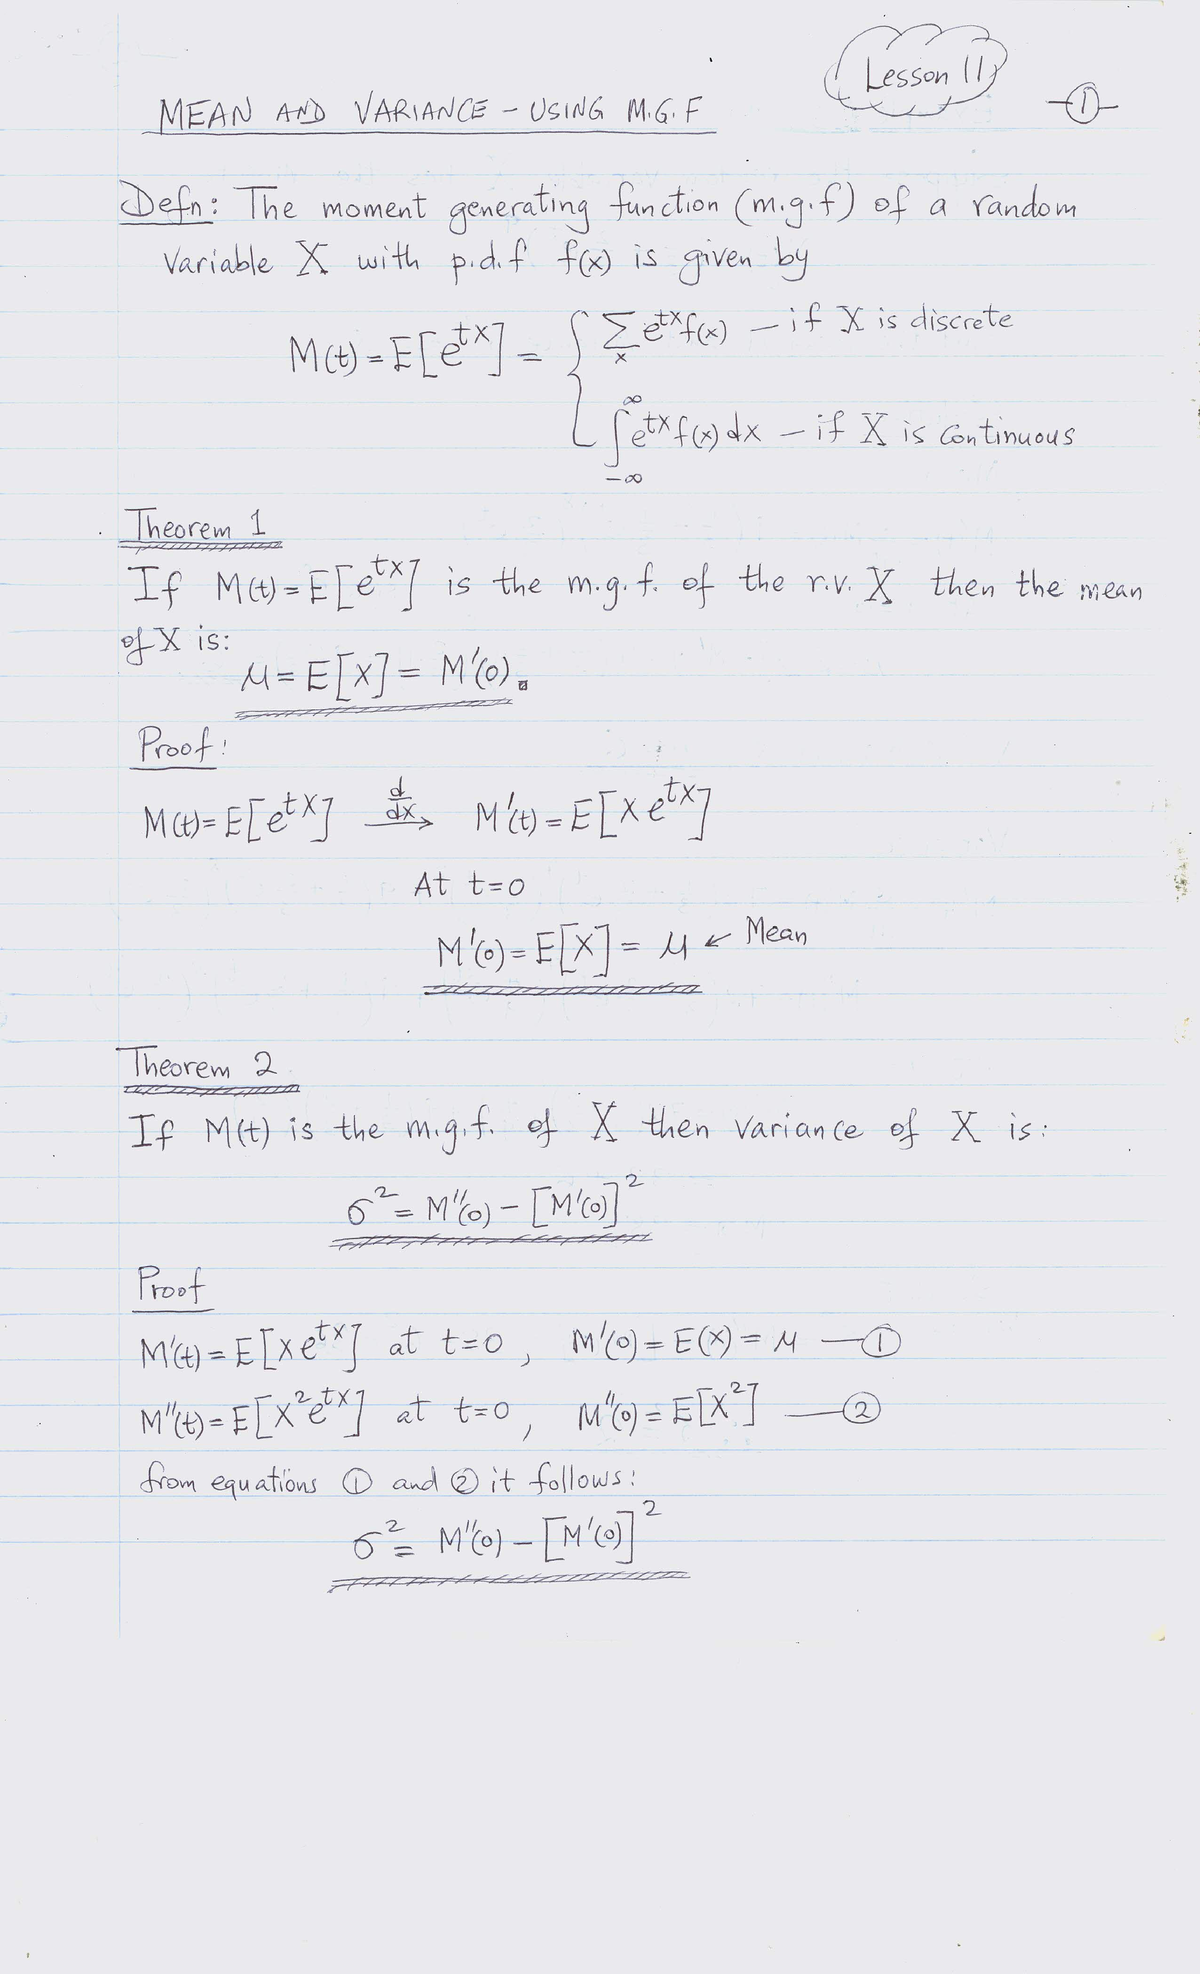 Lesson 11
①
MEAN AND VARIANCE - USING M.G.F
Defn: The moment generating function (m.g.f) of a random
Variable X with p.d.f f(x) is given by
M(t) = E[e^{tX}] = { Σ_x e^{tx} f(x) - if X is discrete
∫_{-∞}^{∞} e^{tx} f(x) dx - if X is continuous
Theorem 1
If M(t) = E[e^{tX}] is the m.g.f. of the r.v. X then the mean
of X is:
μ = E[X] = M'(0).
Proof:
M(t) = E[e^{tX}] \xrightarrow{d/dx} M'(t) = E[X e^{tX}]
At t=0
M'(0) = E[X] = μ ← Mean
Theorem 2
If M(t) is the m.g.f. of X then variance of X is:
σ² = M''(0) - [M'(0)]²
Proof
M'(t) = E[X e^{tX}] at t=0, M'(0) = E(X) = μ — ①
M''(t) = E[X² e^{tX}] at t=0, M''(0) = E[X²] — ②
from equations ① and ② it follows:
σ² = M''(0) - [M'(0)]²